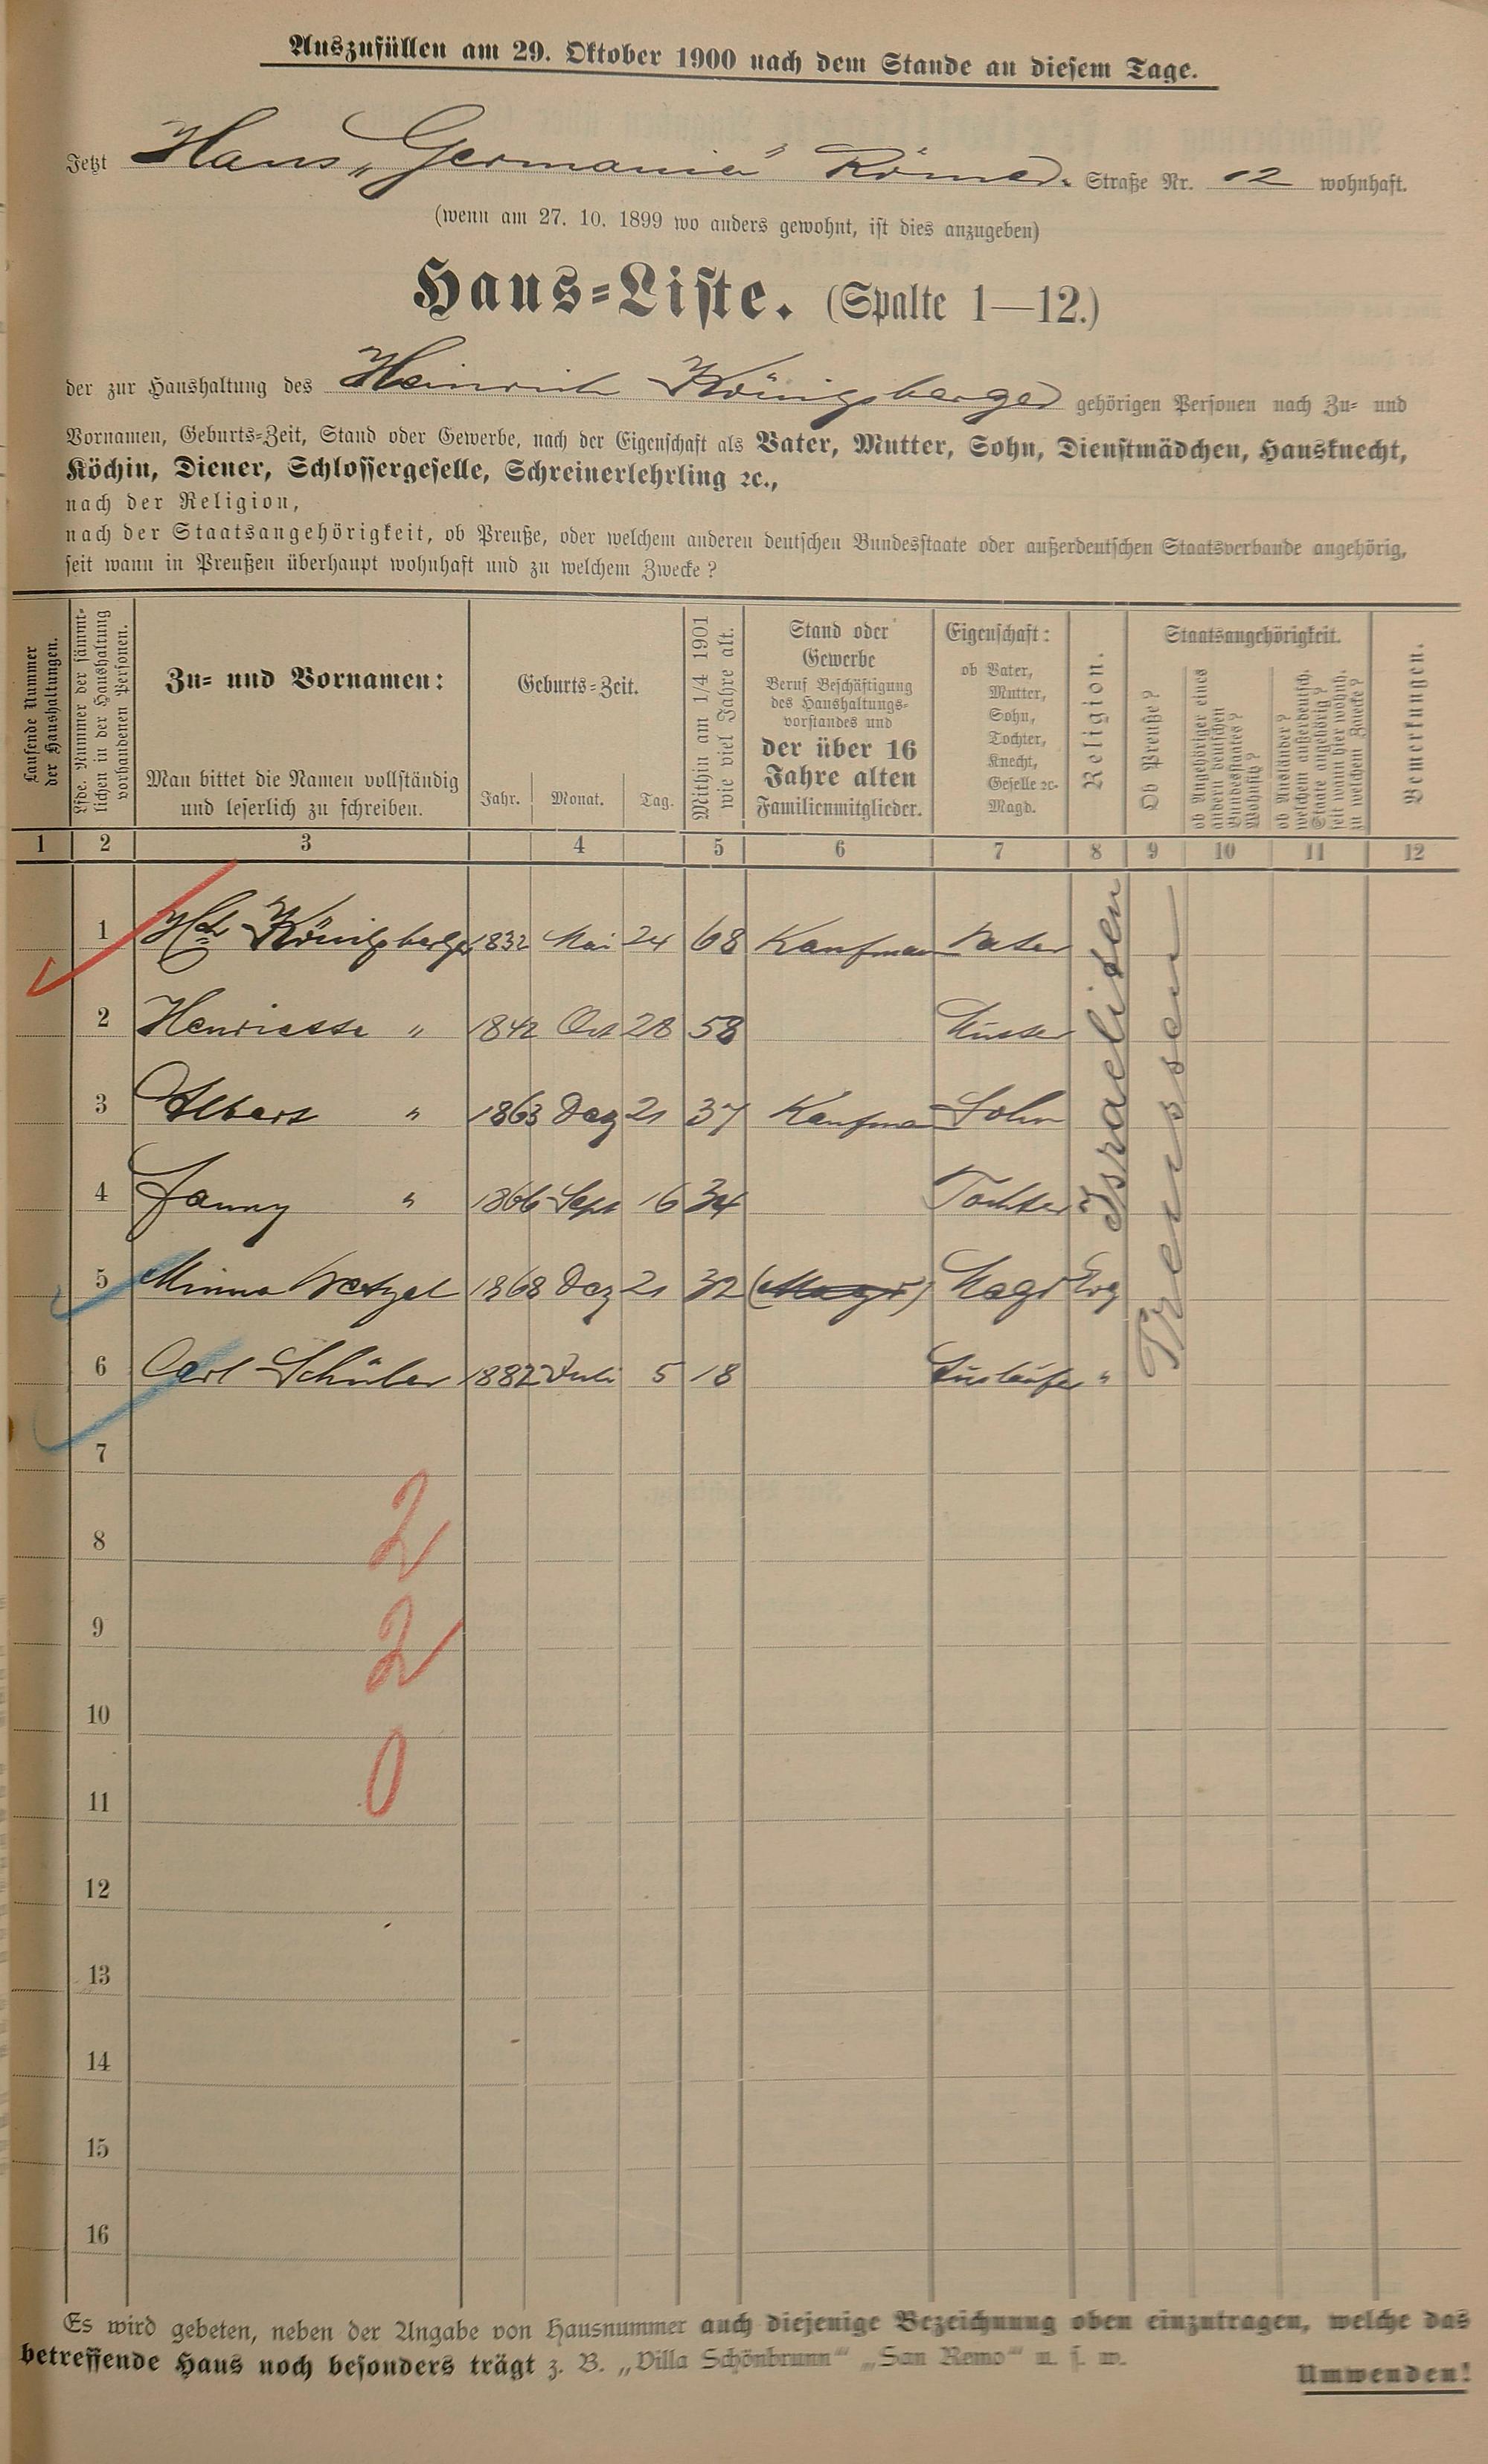 Auszufüllen am 29. Oktober 1900 nach dem Stande an diesem Tage.
Jetzt Haus „Germania“ Römer- Straße Nr. 12 wohnhaft.
(wenn am 27. 10. 1899 wo anders gewohnt, ist dies anzugeben)
Haus-Liste. (Spalte 1—12.)
der zur Haushaltung des Heinrich Königsberger gehörigen Personen nach Zu- und
Vornamen, Geburts-Zeit, Stand oder Gewerbe, nach der Eigenschaft als Vater, Mutter, Sohn, Dienstmädchen, Hausknecht,
Köchin, Diener, Schlossergeselle, Schreinerlehrling ꝛc.,
nach der Religion,
nach der Staatsangehörigkeit, ob Preuße, oder welchem anderen deutschen Bundesstaate oder außerdeutschen Staatsverbande angehörig,
seit wann in Preußen überhaupt wohnhaft und zu welchem Zwecke?
Laufende Nummer
der Haushaltungen.
Lfde. Nummer der sämmt-
lichen in der Haushaltung
vorhandenen Personen.
Zu- und Vornamen:
Man bittet die Namen vollständig
und leserlich zu schreiben.
Geburts-Zeit.
Jahr. Monat. Tag.
Mithin am 1/4 1901
wie viel Jahre alt.
Stand oder
Gewerbe
Beruf Beschäftigung
des Haushaltungs-
vorstandes und
der über 16
Jahre alten
Familienmitglieder.
Eigenschaft:
ob Vater,
Mutter,
Sohn,
Tochter,
Knecht,
Geselle ꝛc.
Magd.
Religion.
Staatsangehörigkeit.
Ob Preuße?
ob Angehöriger eines
andern deutschen
Bundesstaates?
Wohnsitz?
ob Ausländer?
welchem außerdeutsch.
Staate angehörig?
seit wann hier wohnh.
zu welchem Zwecke?
Bemerkungen.
1 2 3 4 5 6 7 8 9 10 11 12
1 Hch Königsberger 1832 Mai 24 68 Kaufmann Vater
2 Henriette " 1842 Oct 28 58 Mutter
3 Albert " 1863 Dez 21 37 Kaufmann Sohn
4 Fanny " 1866 Sept 16 34 Tochter
Israeliten
Preussen
5 Minna Wetzel 1868 Dez 21 32 (Magd) Magd Evg
6 Carl Schüler 1882 Juli 5 18 Ausläufer "
7
8
2
9
2
10
11
0
12
13
14
15
16
Es wird gebeten, neben der Angabe von Hausnummer auch diejenige Bezeichnung oben einzutragen, welche das
betreffende Haus noch besonders trägt z. B. „Villa Schönbrunn“ „San Remo“ u. s. w.
Umwenden!